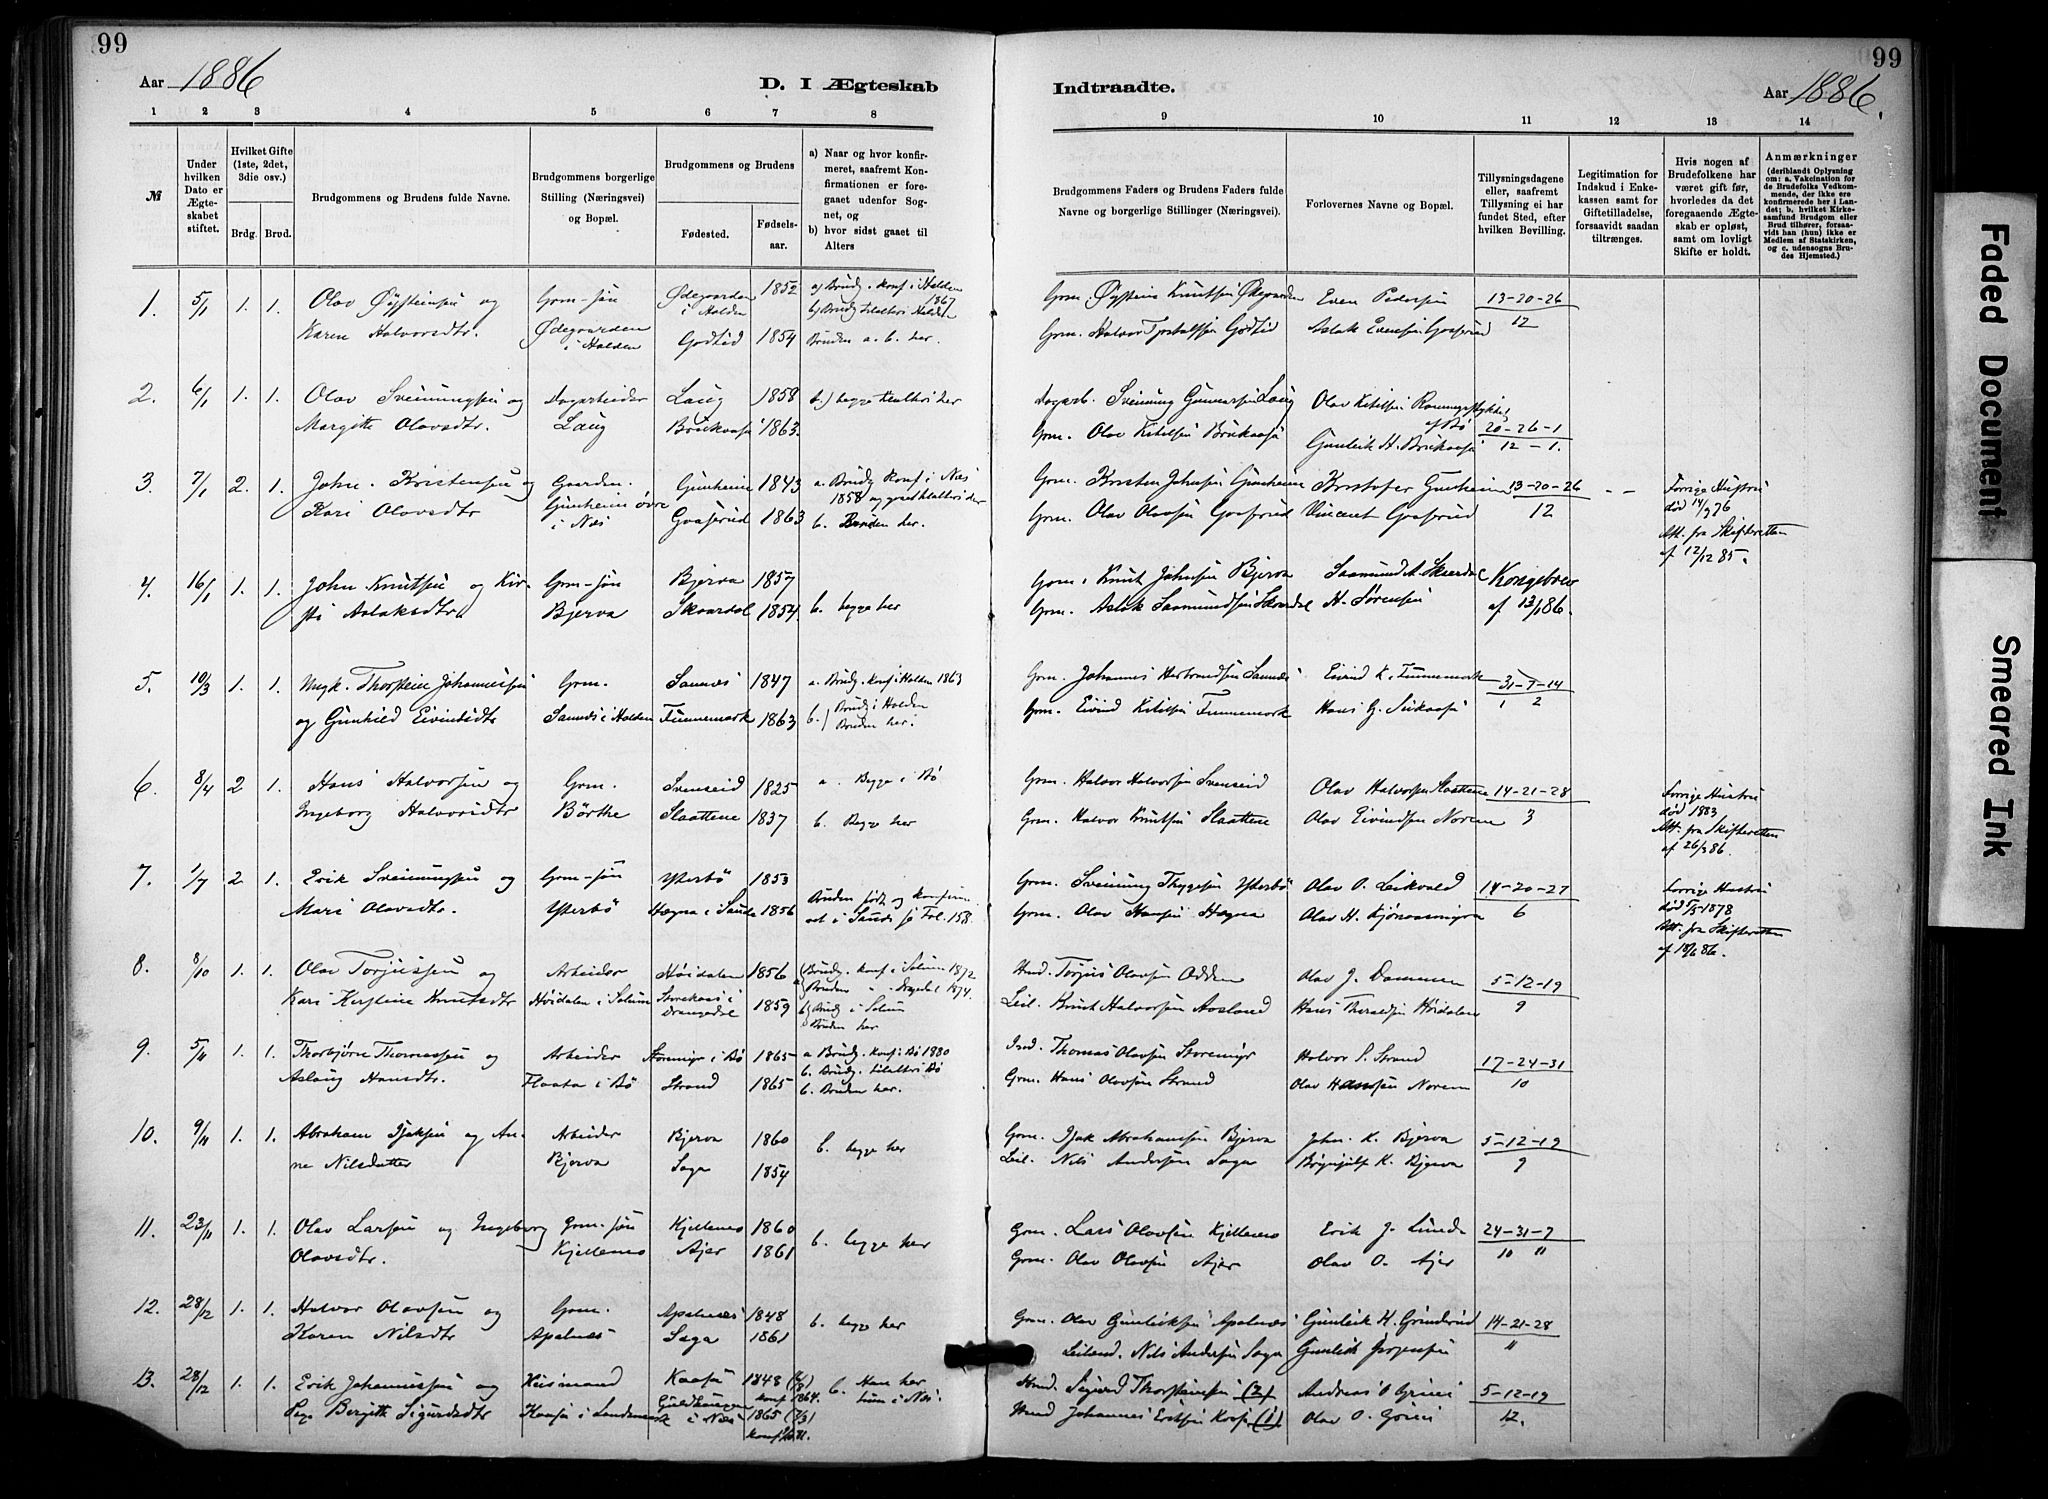 99
99
Aar 1886
D. I Ægteskab
Indtraadte.
Aar 1886.
1 2 3 4 5 6 7 8
9 10 11 12 13 14
№
Under hvilken Dato er Ægteskabet stiftet.
Hvilket Gifte (1ste, 2det, 3die osv.)
Brdg. Brud.
Brudgommens og Brudens fulde Navne.
Brudgommens borgerlige Stilling (Næringsvei) og Bopæl.
Brudgommens og Brudens
Fødested. Fødselsaar.
a) Naar og hvor konfirmeret, saafremt Konfirmationen er foregaaet udenfor Sognet, og
b) hvor sidst gaaet til Alters
Brudgommens Faders og Brudens Faders fulde Navne og borgerlige Stillinger (Næringsvei).
Forlovernes Navne og Bopæl.
Tillysningsdagene eller, saafremt Tillysning ei har fundet Sted, efter hvilken Bevilling.
Legitimation for Indskud i Enkekassen samt for Giftetilladelse, forsaavidt saadan tiltrænges.
Hvis nogen af Brudefolkene har været gift før, hvorledes da det foregaaende Ægteskab er opløst, samt om lovligt Skifte er holdt.
Anmærkninger (deriblandt Oplysning om: a. Vakcination for de Brudefolks Vedkommende, der ikke ere konfirmerede her i Landet; b. hvilket Kirkesamfund Brudgom eller Brud tilhører, forsaavidt han (hun) ikke er Medlem af Statskirken, og c. udensogns Brudes Hjemsted.)
1. 5/1 1. 1. Olav Øysteinsen og Grm-søn Ødegaarden i Holden 1852 a) Brudg. konf. i Holden 1867 Grm. Øystein Knutsen Ødegaarden Even Pedersen 13-20-26
Karen Halvorsdtr. Ødegaarden i Holden Godtid 1854 b) Brudg. tilalters i Holden Bruden a. b. her. Grm. Halvor Godtid Aslak Evensen Goasrud 12
2. 6/1 1. 1. Olav Sveinungsen og Dagarbeider Laug 1858 b.) begge tilalters her Dagarb. Sveinung Gunnarsen Laug Olav Kitilsen af Bø 20-26-1
Margitte Olavsdtr. Laug 1863. Grm. Olav Kitilsen Gunleik H. 12 - 1.
3. 7/1 2. 1. John Kristensen og Gaardm. Gunheim 1843 a. Brudg. konf. i Næs 1858 og gaar tilalters der Grm. Kristen Johnsen Gunheim Kristofer Gunheim 13-20-26 - - Forrige Hustru død 14/9 76
Kari Olavsdtr Gunheim øvre i Næs Goasrud 1863 b. Bruden her. Grm. Olav Olavsen Goasrud Vincent Goasrud 12 Att. fra Skifteretten af 12/12 85.
4. 16/1 1. 1. John Knutsen og Kir- Grm-søn Bjerva 1857 Grm. Knut Johnsen Bjerva Saamund A. Kongebrev
sti Aslaksdtr Bjerva Skaardal 1854. b. begge her Grm. Aslak Saamundsen Skaardal H. Sørensen af 13/1 86.
5. 10/3 1. 1. Ungk. Thorstein Johannessen Grm. Sannæs 1847 a. Brudg. konf i Holden 1863 Grm. Johannes Herbrandsen Sannæs Eivind K. Finnemark 31-7-14
og Gunhild Eivindsdtr Sannæs i Holden Finnemark 1863 b.) Brudg i Holden Bruden her. Grm. Eivind Kitilsen Finnemark Hans G. 1 2
6. 8/4 2 1. Hans Halvorsen og Grm. Svenseid 1825 a. Begge i Bø Grm. Halvor Halvorsen Svenseid Olav Halvorsen Slaattene 14-21-28 Forrige Hustru død 1883
Ingeborg Halvorsdtr Børthe Slaattene 1837 b. Begge her Grm. Halvor Knutsen Slaattene Olav Eivindsen Norem 3 Att. fra Skifteretten af 26/3 86.
7. 1/7 2 1. Erik Sveinungsen og Grm-søn Ysterbø 1853 Bruden født og konfirmeret i Saude se Fol. 158. Grm. Sveinung Thygesen Ysterbø Olav O. Leikvold 14-20-27 Forrige Hustru død 5/5-1878
Mari Olavsdtr. Ysterbø Hægna i Saude 1856 Grm. Olav Hansen Hægna Olav H. 6 Att. fra Skifteretten af 18/6 86.
8. 8/10 1. 1. Olav Torjussen og Arbeider Høidalen 1856 a) Brudg. konf i Solum 1872 Bruden " " Drangedal 1874. Husd. Torjus Olavsen Odden Olav J. Dammen 5-12-19
Kari Kirstine Knutsdtr Høidalen i Solum i Drangedal 1859 b) Brudg i Solum Bruden her Leil. Knut Halvorsen Aasland Hans Høidalen 9
9. 5/11 1. 1. Thorbjørn Thomassen og Arbeider Storemyr i Bø 1865 a Brudg. konf i Bø 1880 Ind. Thomas Olavsen Storemyr Halvor S. Strand 17-24-31
Aslaug Hansdtr. Flaata i Bø Strand 1865 b. Brudg. tilalters i Bø b. Bruden her. Grm. Hans Olavsen Strand Olav Hanssen Norem 10
10. 9/11 1. 1. Abraham Isaksen og An- Arbeider Bjerva 1860 b. begge her Grm. Isak Abrahamsen Bjerva John K. Bjerva 5-12-19
ne Nilsdatter Bjerva Saga 1854 Leil. Nils Andersen Saga Brynjulf K. Bjerva 9
11. 23/11 1. 1. Olav Larsen og Ingeborg Grm-søn Kjellenes 1860 Grm. Lars Olavsen Kjellenes Erik J. Linde 24-31-7
Olavsdtr. Kjellenes Ajer 1861 b. begge her Grm. Olav Olavsen Ajer Olav O. Ajer 10 11
12. 28/12 1. 1. Halvor Olavsen og Grm. Apalnæs 1848 b. begge her Grm. Olav Gunleiksen Apalnæs Gunleik H. Grinderud 14-21-28
Karen Nilsdtr Apalnæs Saga 1861 Leilend. Nils Andersen Saga Gunleik 11
13. 28/12 1. 1. Erik Johannessen og Husmand Kaasa 1848 konf 1864. b. Han her Husd. Sigurd Thorsteinsen (2) Andreas O Grini 5-12-19
Bergith Sigurdsdtr Kaasa i Landsmark i Næs 1865 hun i Næs. Husd Johannes Eriksen Kaasa (1) Olav O. Grini 12.
Faded Document
Smeared Ink